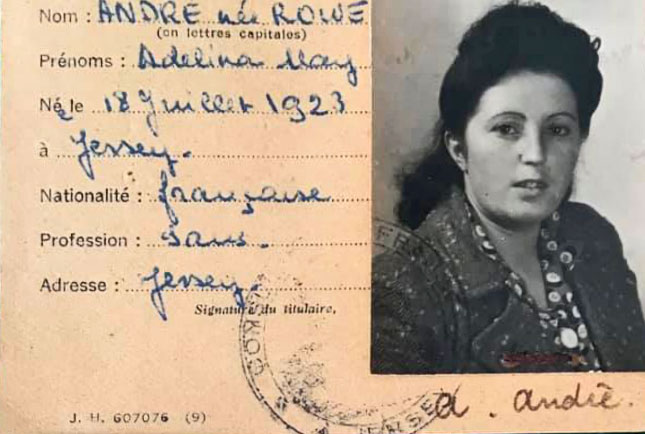 Nom : ANDRE née ROWE
(en lettres capitales)
Prénoms : Adelina May
Née le 18 Juillet 1923
à Jersey.
Nationalité : française
Profession : Sans.
Adresse : Jersey.
Signature du titulaire.
a. andré.
J. H. 607076 (9)